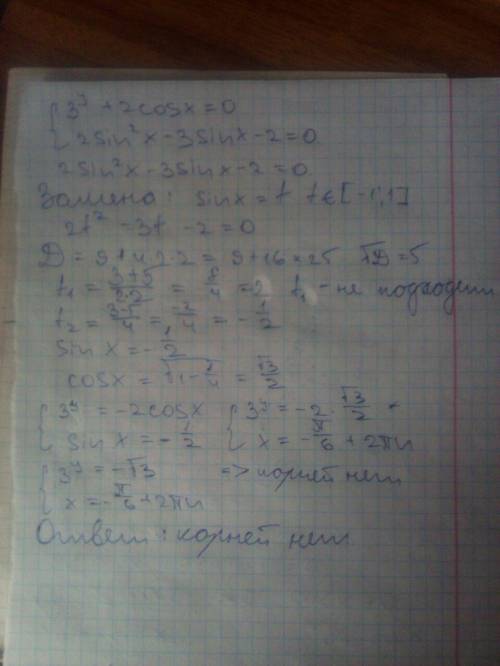 { 3^y + 2cosx = 0
{ 2sin²x - 3sinx - 2 = 0
2sin²x - 3sinx - 2 = 0
Замена: sinx = t t∈[-1;1]
2t² - 3t - 2 = 0
D = 9 + 4·2·2 = 9 + 16 = 25 √D = 5
t₁ = (3+5)/(2·2) = 8/4 = 2 t₁ - не подходит
t₂ = (3-5)/4 = -2/4 = -1/2
sin x = -1/2
cosx = √(1 - 1/4) = √3/2
{ 3^y = -2cosx { 3^y = -2·√3/2
{ sin x = -1/2 { x = -π/6 + 2πn
{ 3^y = -√3 => корней нет
{ x = -π/6 + 2πn
Ответ: корней нет